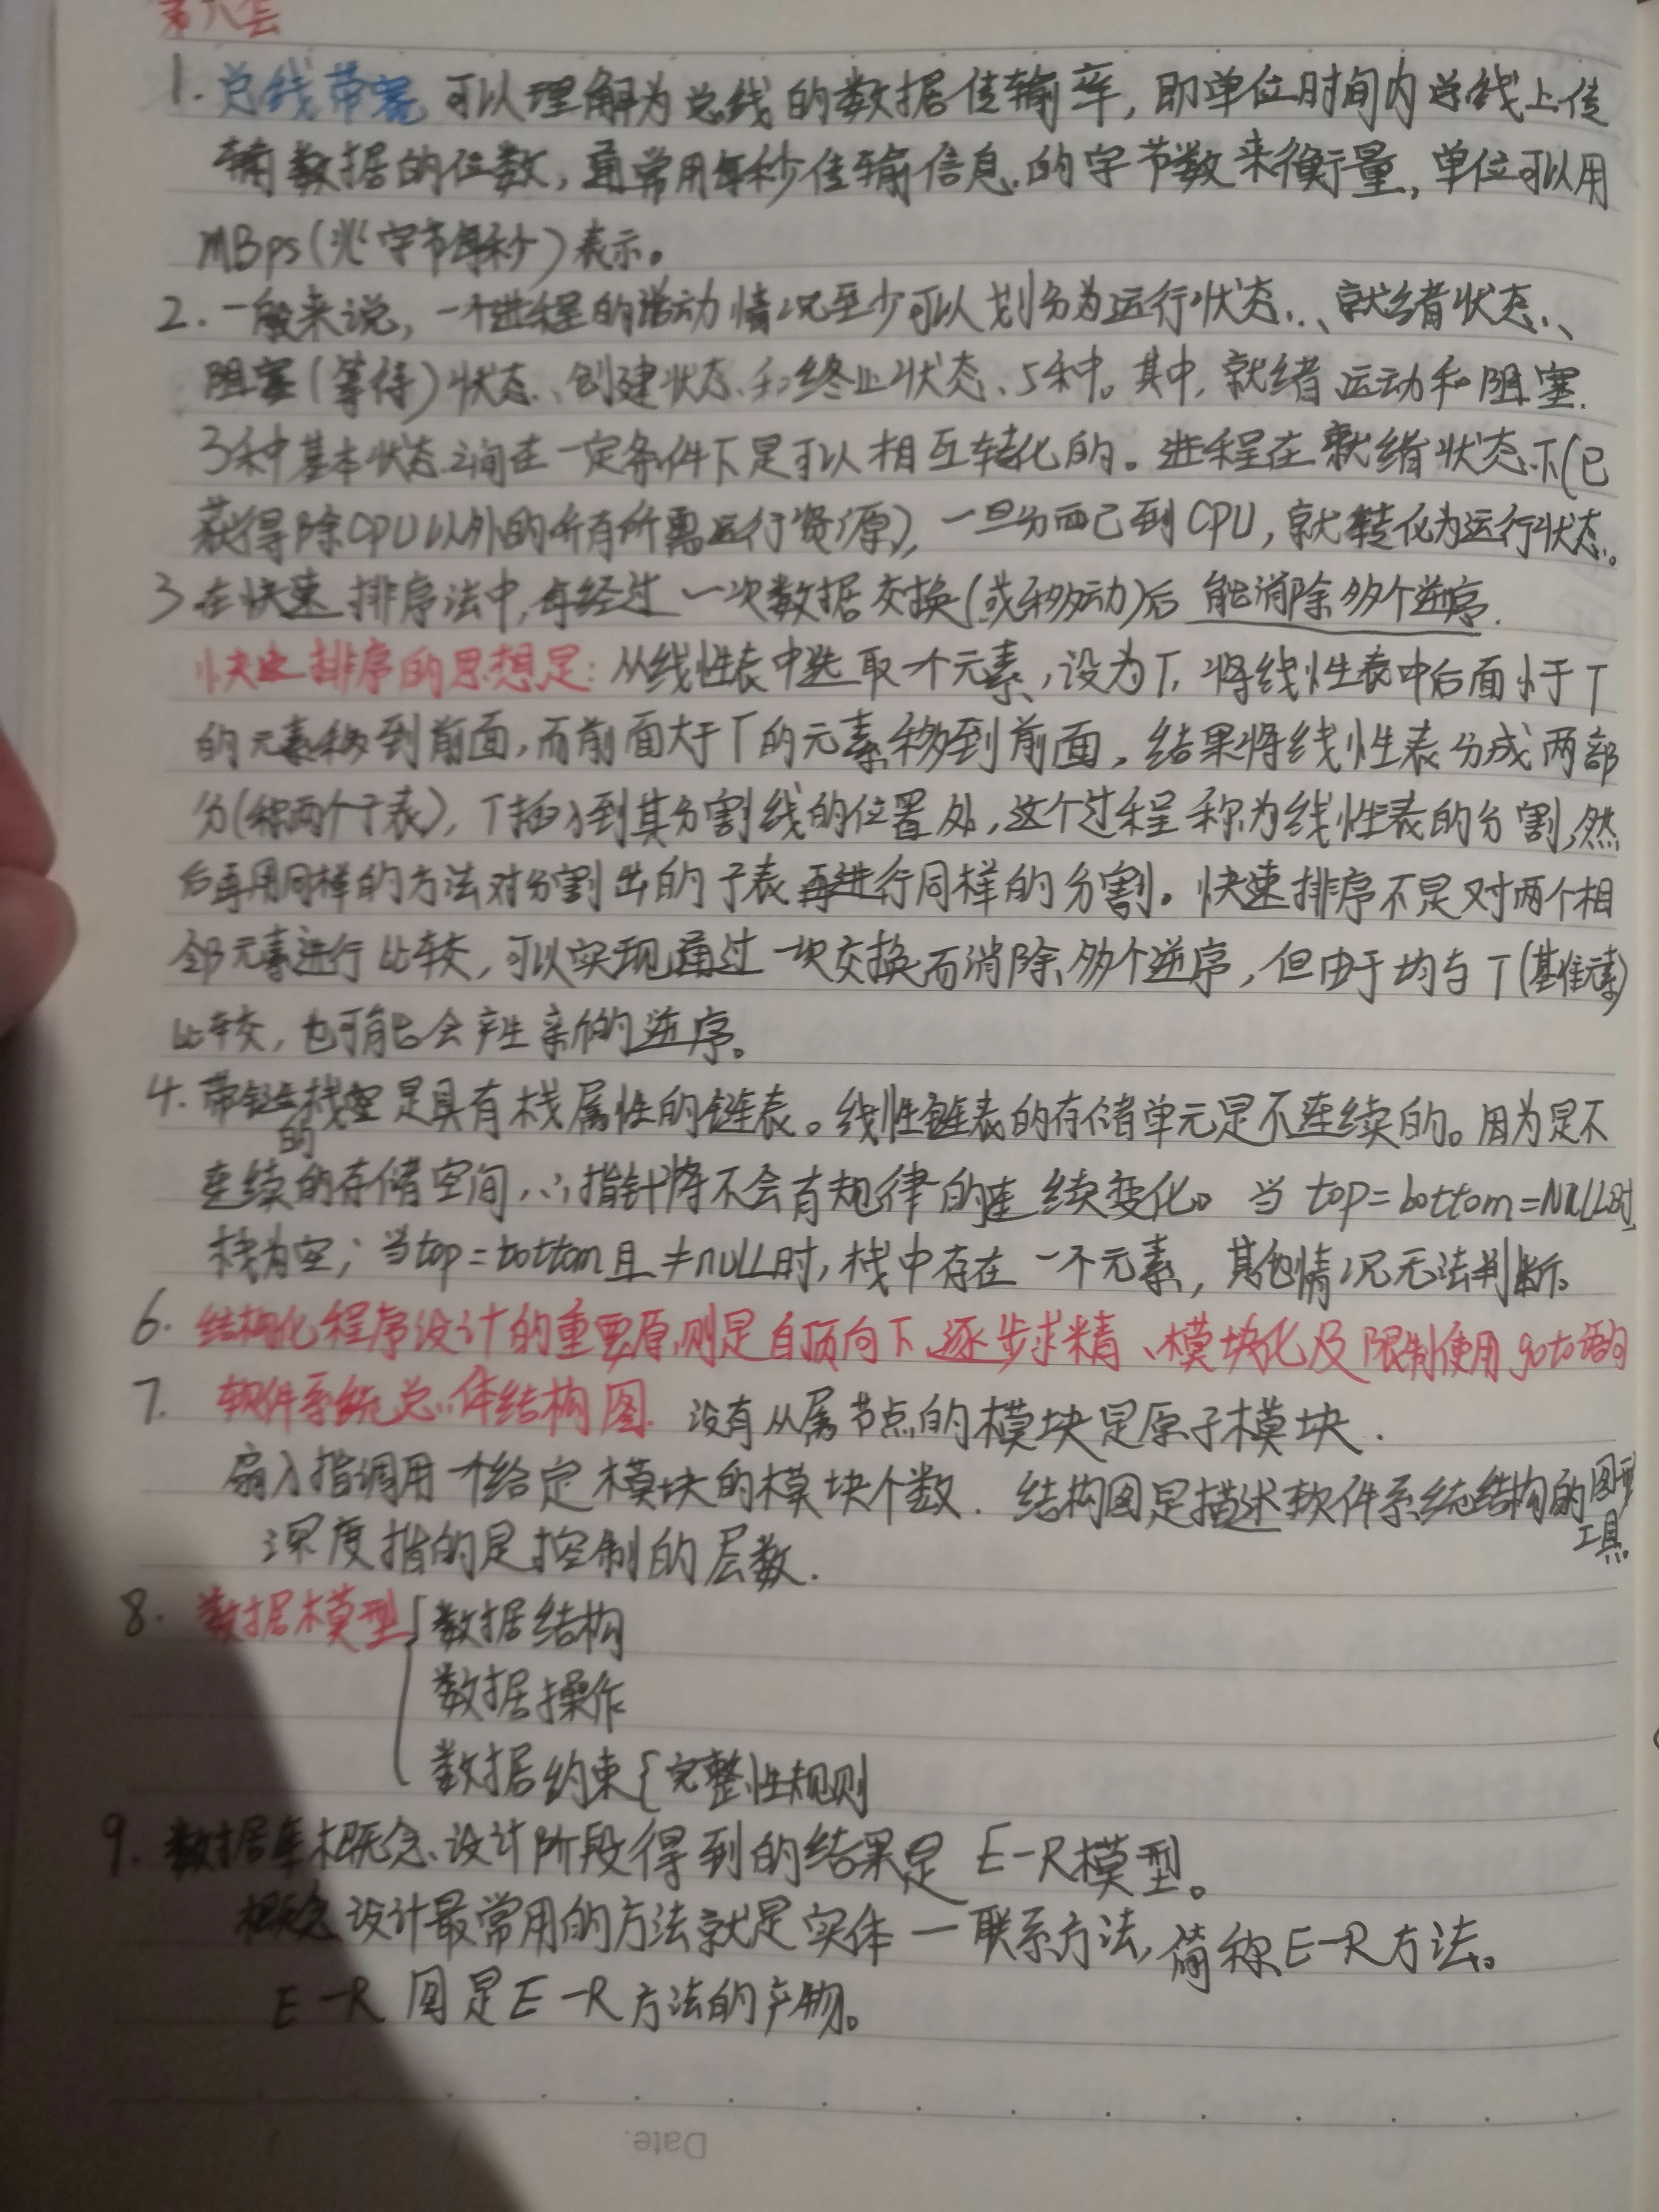 第八套
1. 总线带宽 可以理解为总线的数据传输率，即单位时间内总线上传
输数据的位数，通常用每秒传输信息的字节数来衡量，单位可以用
MBps(兆字节每秒)表示。
2. 一般来说，一个进程的活动情况至少可以划分为运行状态、就绪状态、
阻塞(等待)状态、创建状态和终止状态、5种。其中，就绪运动和阻塞
3种基本状态之间在一定条件下是可以相互转化的。进程在就绪状态下(已
获得除CPU以外的所有所需运行资源)，一旦分配到CPU，就转化为运行状态。
3 在快速排序法中，每经过一次数据交换(或移动)后 能消除多个逆序.
快速排序的思想是: 从线性表中选取一个元素，设为T，将线性表中后面小于T
的元素移到前面，而前面大于T的元素移到前面，结果将线性表分成两部
分(称两个子表)，T插入到其分割线的位置处，这个过程称为线性表的分割，然
后再用同样的方法对分割出的子表再进行同样的分割。快速排序不是对两个相
邻元素进行比较，可以实现通过一次交换而消除多个逆序，但由于均与T(基准元素)
比较，也可能会产生新的逆序。
4. 带链的栈是具有栈属性的链表。线性链表的存储单元是不连续的。因为是不
连续的存储空间，∴指针将不会有规律的连续变化。当top=bottom=NULL时
栈为空；当top=bottom且≠NULL时，栈中存在一个元素，其他情况无法判断。
6. 结构化程序设计的重要原则是自顶向下、逐步求精、模块化及限制使用goto语句
7. 软件系统总体结构图 没有从属节点的模块是原子模块.
扇入指调用一个给定模块的模块个数. 结构图是描述软件系统结构的图形
工具。
深度指的是控制的层数.
8. 数据模型{数据结构
数据操作
数据约束{完整性规则
9. 数据库概念设计阶段得到的结果是 E-R模型。
概念设计最常用的方法就是实体一联系方法，简称E-R方法。
E-R 图是E-R方法的产物。
Date.